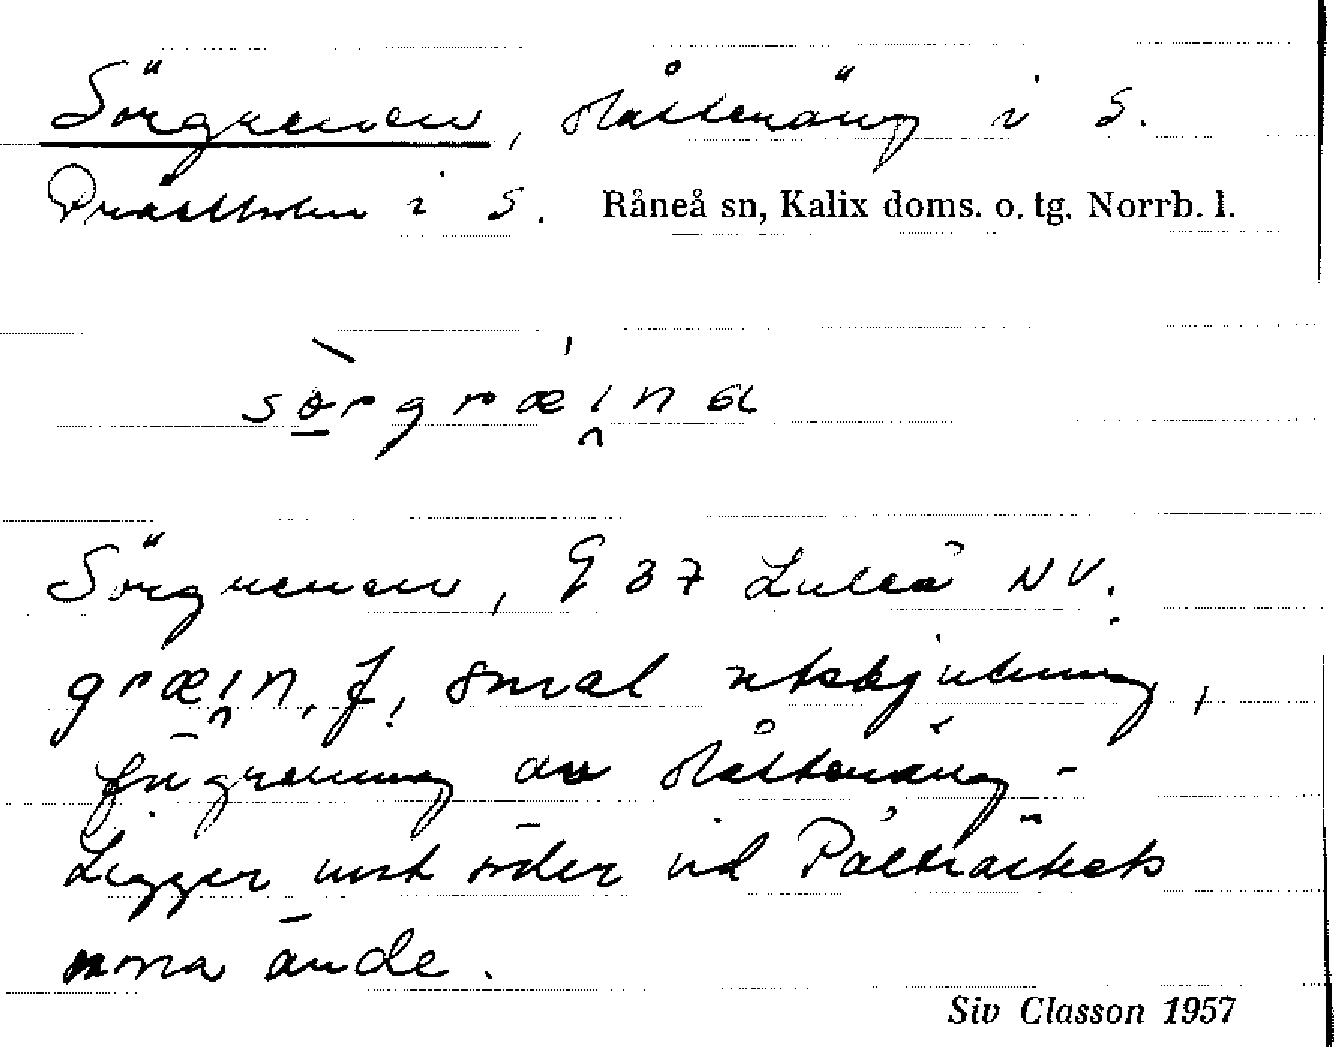 Sörgrenen, slåtteräng i S.
Prästholm i S. Råneå sn, Kalix doms. o. tg. Norrb. l.
sørgræi̯na
Sörgrenen, G 37 Luleå NV.
græi̯n, f, smal utskjutning,
förgrening av slåtteräng -
Ligger mot söder vid Pålträskets
norra ände.
Siv Classon 1957